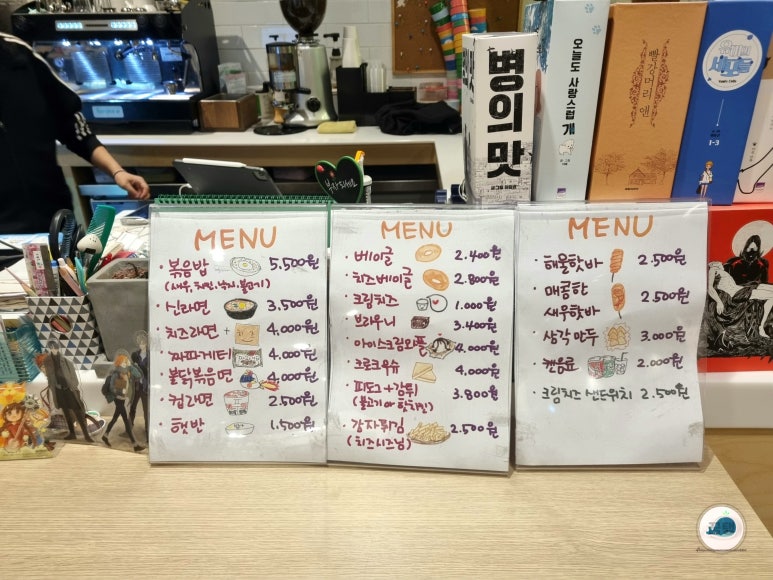 병의 맛
오늘도 사랑스럽개
빨강머리 앤
1-3
MENU
볶음밥 5,500원
신라면 3,500원
치즈라면 + 4,000원
짜파게티 4,000원
불닭볶음면 4,000원
컵라면 2,500원
햇반 1,500원
MENU
베이글 2,400원
치즈베이글 2,800원
크림치즈 1,000원
브라우니 3,400원
아이스크림와플 4,000원
크로크무슈 4,000원
피도그+감튀 3,800원
감자튀김 2,500원
(치즈시즈닝)
MENU
해물핫바 2,500원
매콤핫바
새우핫바 2,500원
삼각만두 3,000원
캔음료 2,000원
크림치즈 샌드위치 2,500원